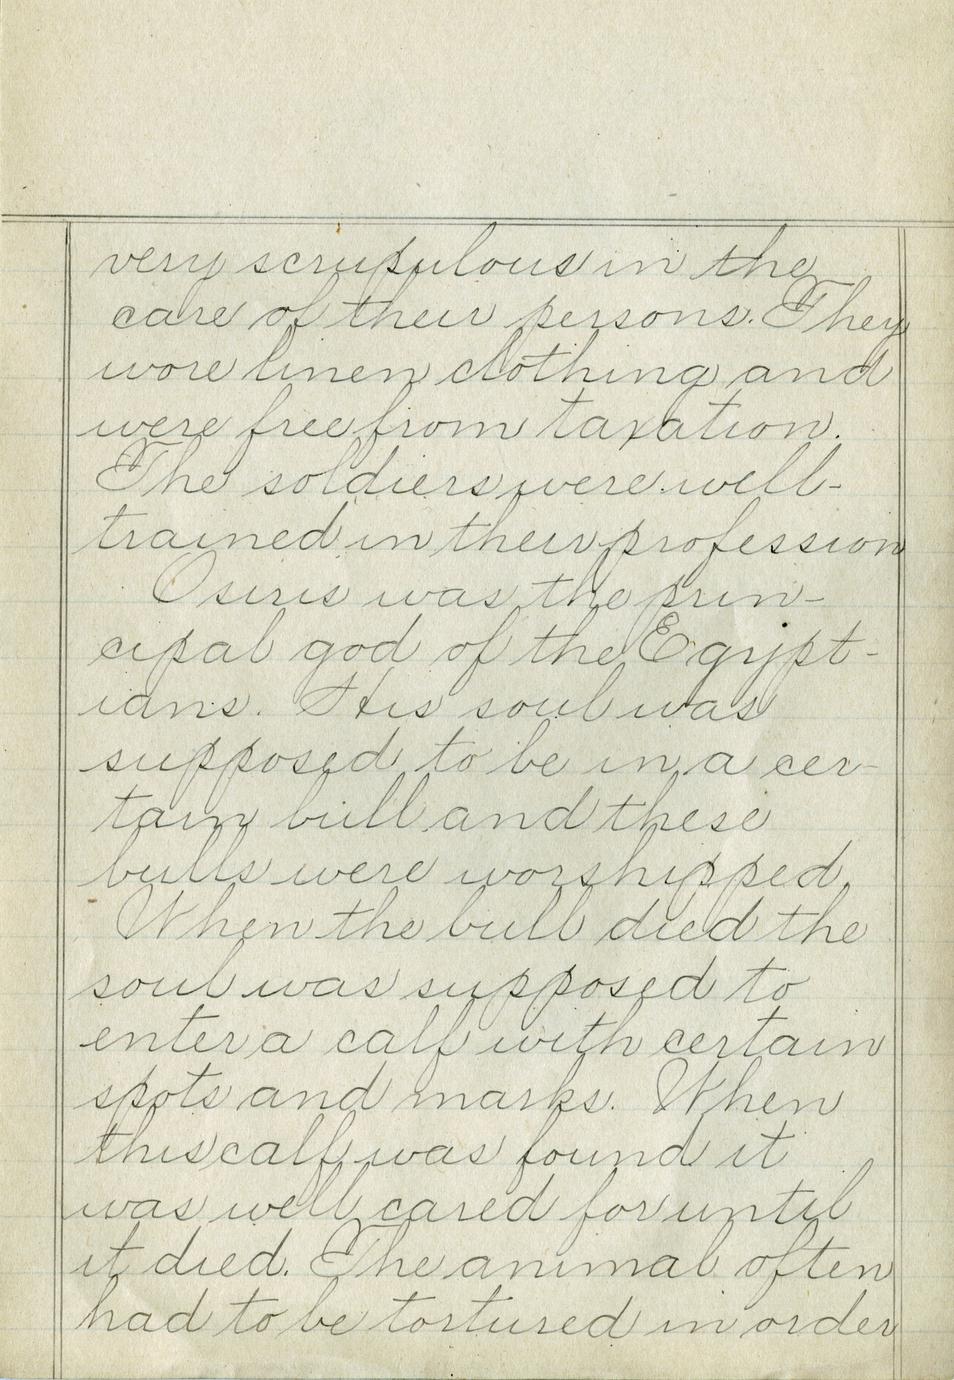 very scrupulous in the
care of their persons. They
wore linen clothing and
were free from taxation.
The soldiers were well-
trained in their profession
Osiris was the prin-
cipal god of the Egypt-
ians. His soul was
supposed to be in a cer-
tain bull and these
bulls were worshipped.
When the bull died the
soul was supposed to
enter a calf with certain
spots and marks. When
this calf was found it
was well cared for until
it died. The animal often
had to be tortured in order